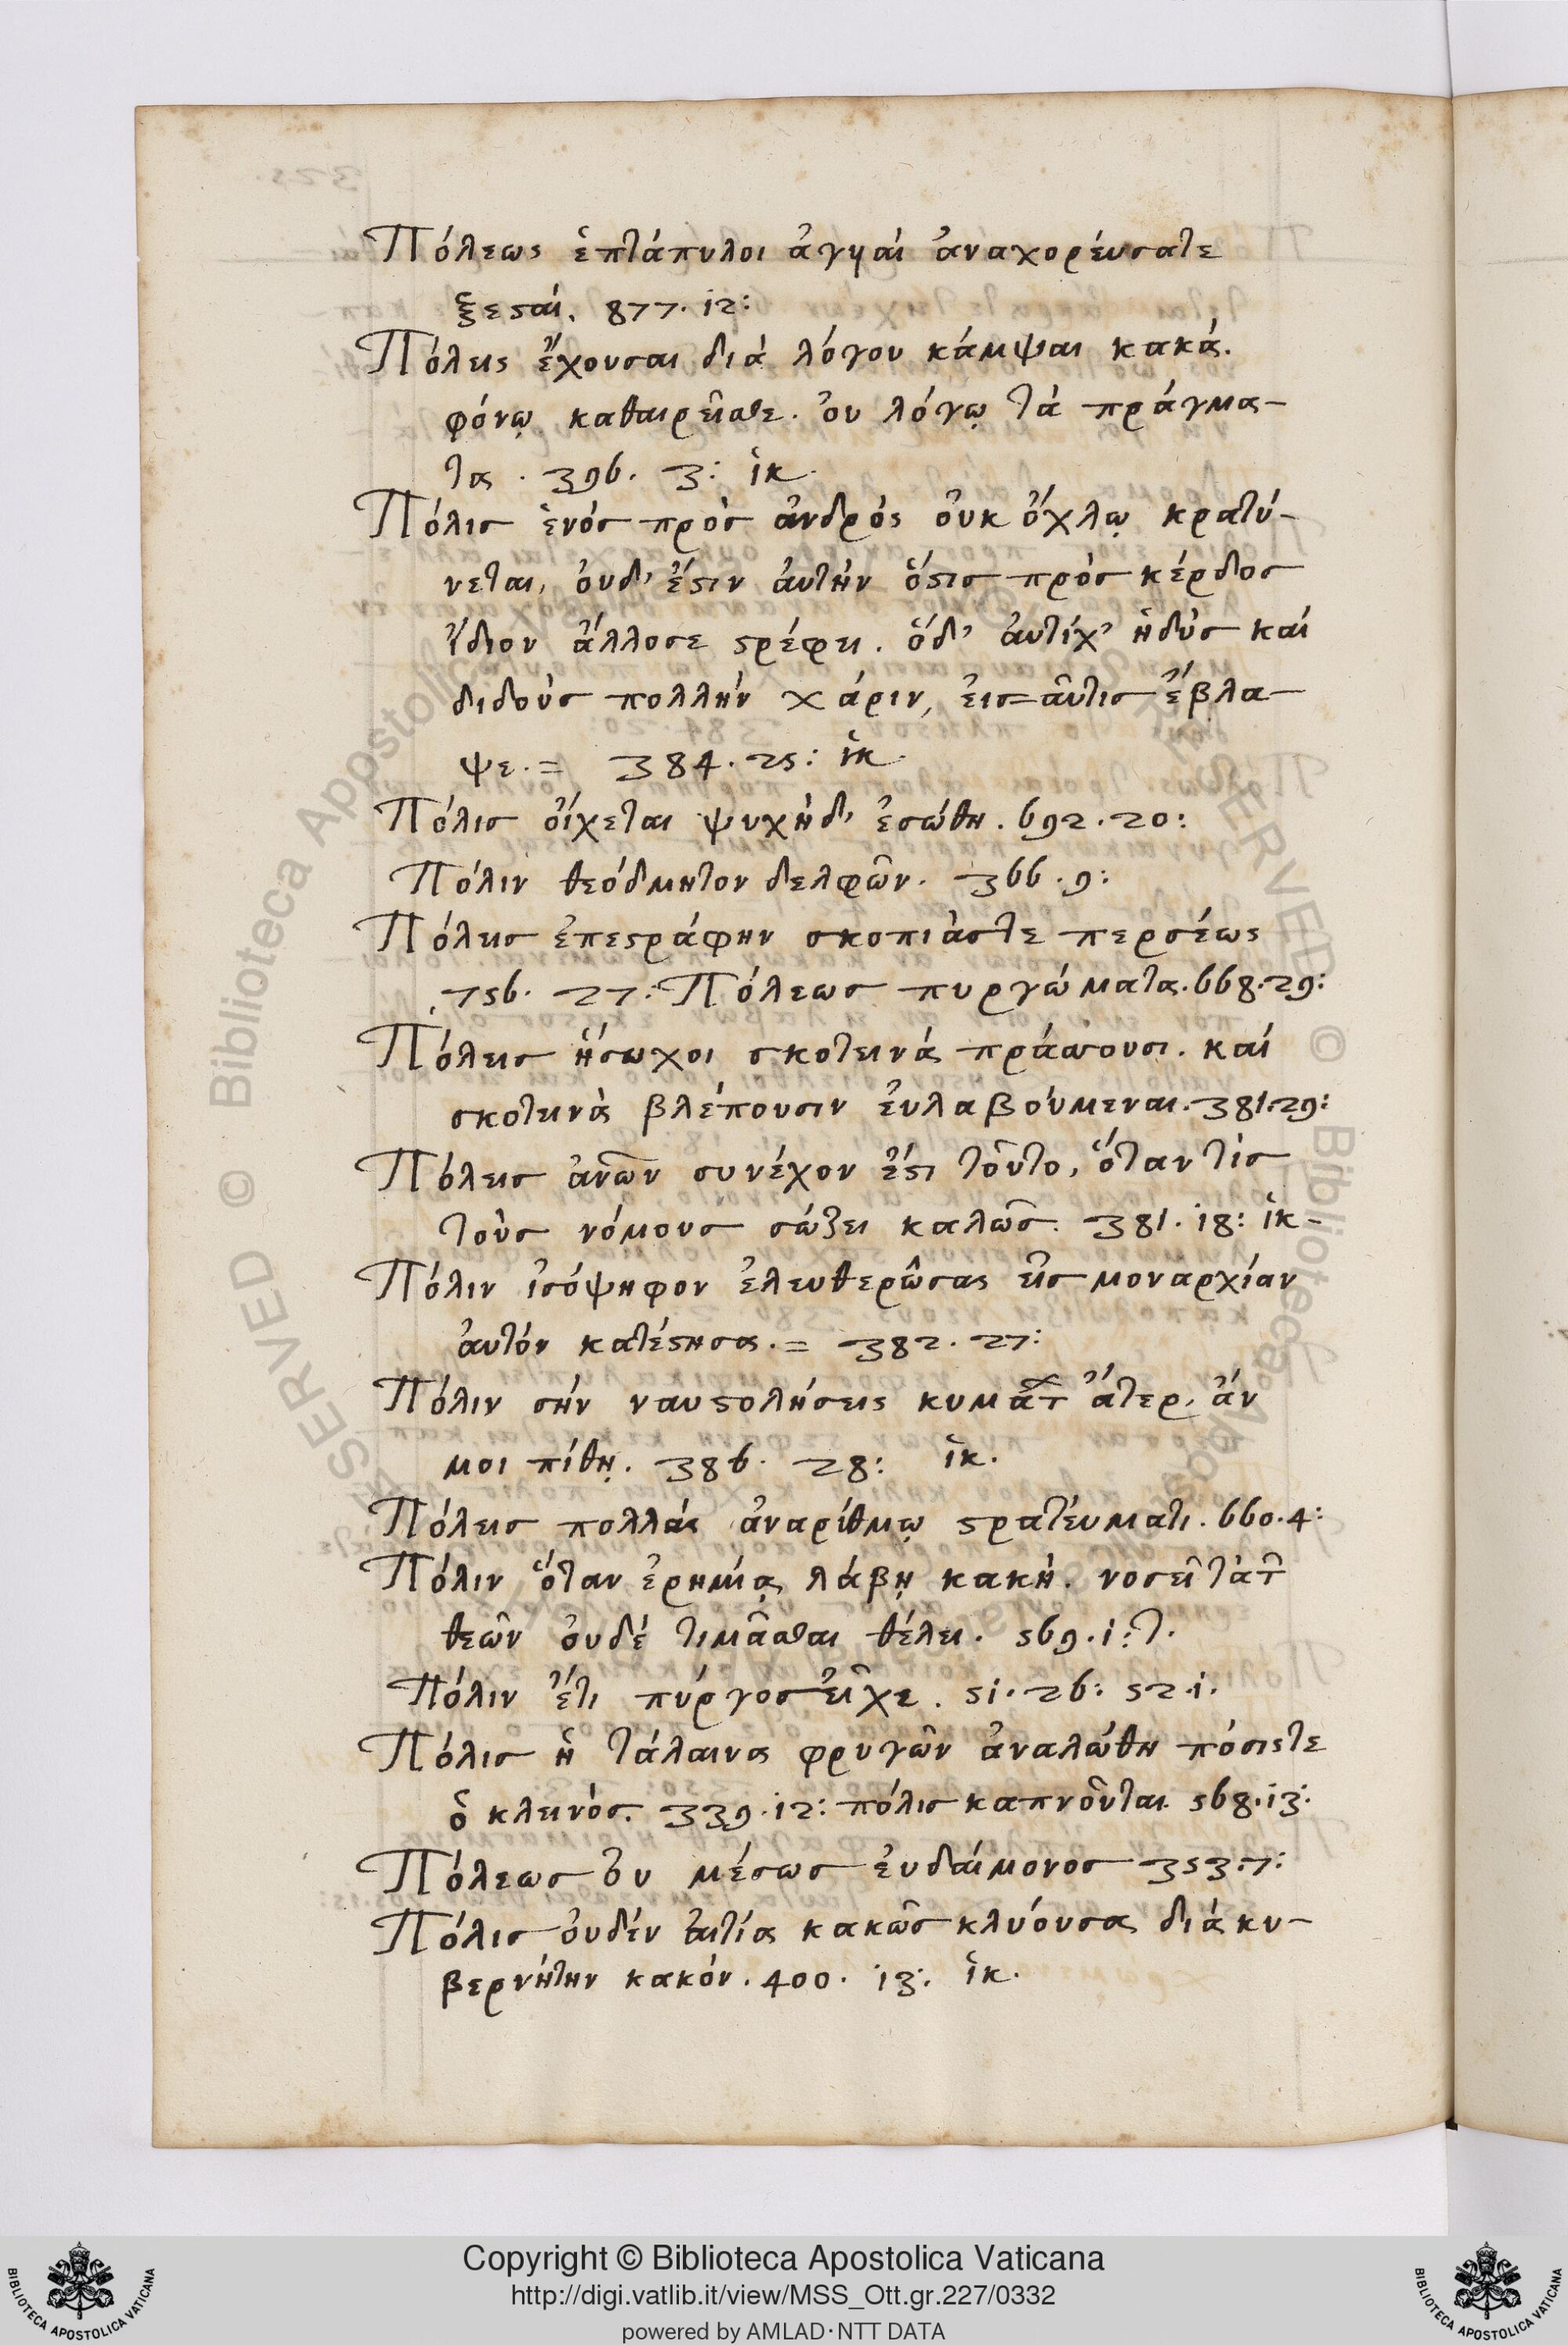 Πόλεως ἑπτάπυλοι ἀγυιαί ἀναχορέυσατε
ξεσταί. 877. 12:
Πόλεις ἔχουσαι διὰ λόγου κάμψαι κακά.
φόνῳ καθαιρεῖσθε. ὀυ λόγῳ τὰ πράγμα-
τα. 396. 3: ἱκ.
Πόλισ ἑνόσ πρὸσ ἀνδρός ὀυκ ὄχλῳ κρατύ-
νεται, ὀυδ' ἔστιν ἀυτὴν ὅστισ πρὸσ κέρδοσ
ἴδιον ἄλλοσε στρέφει. ὅδ' ἀυτίχ' ἡδὺσ καὶ
διδοὺσ πολλὴν χάριν, ἐισ=αῦτισ ἔβλα-
ψε.= 384. 25: ἱκ.
Πόλισ οἴχεται ψυχὴδ' ἐσώθη. 692. 20:
Πόλιν θεόδμητον δελφῶν. 366. 9:
Πόλεισ ἐπεστράφην σκοπιὰστε περσέως
756. 27: Πόλεωσ πυργώματα. 668. 29:
Πόλεισ ἥσυχοι σκοτεινὰ πράσσουσι. καί
σκοτεινὰ βλέπουσιν ἐυλαβούμεναι. 381. 29:
Πόλεισ ἀνῶν συνέχον ἔστι τοῦτο, ὅταν τὶσ
τοὺσ νόμουσ σώζει καλῶσ. 381. 18: ἱκ-
Πόλιν ἰσόψηφον ἐλευθερώσας εἰσ μοναρχίαν
ἀυτόν κατέστησα.= 382. 27:
Πόλιν σήν ναυστολήσεις κυμάτ ἄτερ. ἄν
μοι πίθῃ. 386. 28: ἱκ.
Πόλεισ πολλάς ἀναρίθμῳ στρατέυματι. 660. 4:
Πόλιν ὅταν ἐρημίᾳ λάβῃ κακή. νοσεῖ τὰτ
θεῶν ὀυδέ τιμᾶσθαι θέλει. 569. 1: τ.
Πόλιν ἔτι πύργοσ εἶχε. 51. 26: 52. 1.
Πόλισ ἡ τάλαινα φρυγῶν ἀναλώθη πόσιστε
ὁ κλεινόσ. 339. 12: πόλισ καπνοῦται. 568. 13.
Πόλεωσ ὀυ μέσωσ ἐυδαίμονοσ 353. 7:
Πόλισ ὀυδέν ἀιτία κακῶσ κλύουσα διά κυ-
βερνήτην κακόν. 400. 13: ἱκ.
Copyright © Biblioteca Apostolica Vaticana
http://digi.vatlib.it/view/MSS_Ott.gr.227/0332
powered by AMLAD·NTT DATA